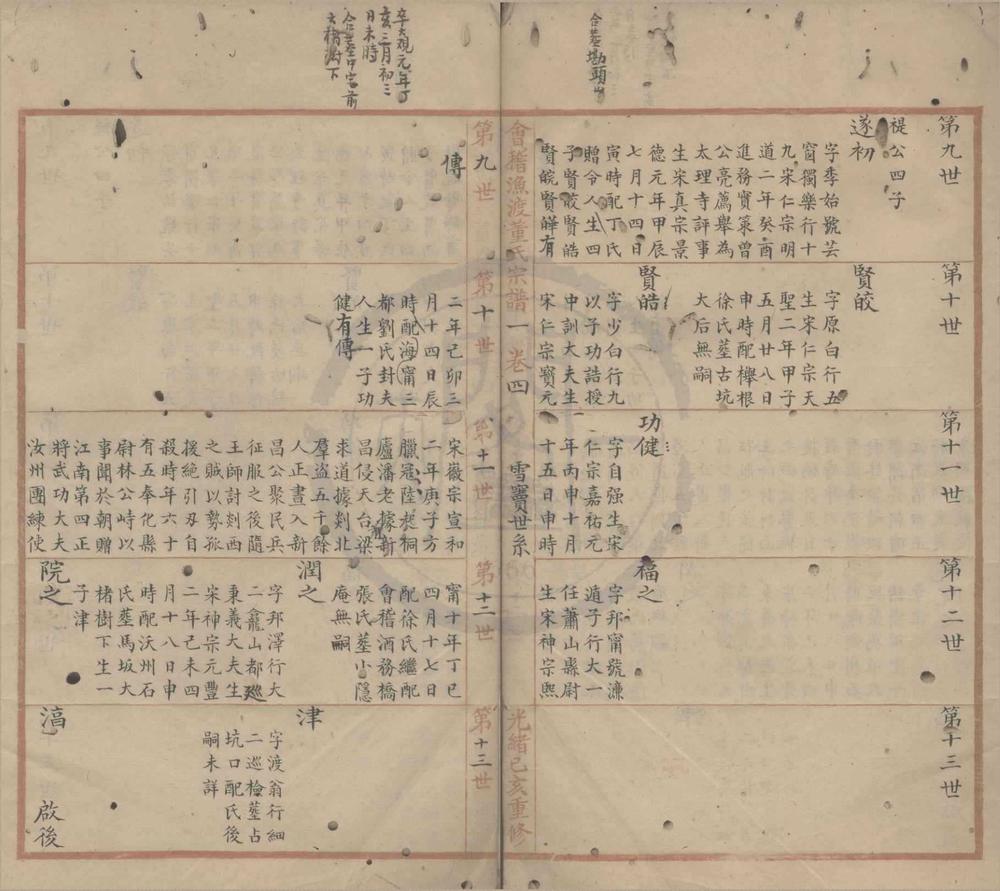 合墓塢頭
第九世
禔公四子
遂初
字季始號芸
窗獨樂行十
九宋仁宗明
道二年癸酉
進務實策曾
公亮薦舉為
太理寺評事
生宋真宗景
德元年甲辰
七月十四日
寅時配丁氏
贈令人生四
子賢皎賢皓
賢皖賢皡有
第十世
賢皎
字原白行五
生宋仁宗天
聖二年甲子
五月廿八日
申時配櫸根
徐氏墓古坑
大后無嗣
賢皓
字少白行九
以子功誥授
中訓大夫生
宋仁宗寶元
第十一世
功健
字自强生宋
仁宗嘉祐元
年丙申十月
十五日申時
第十二世
福之
字邦甯號濂
遁子行大一
任蕭山縣尉
生宋神宗熙
第十三世
會稽漁渡董氏宗譜
一
卷四
雪竇世系
光緒己亥重修
卒大觀元年丁
亥三月初三
日未時
合墓中宅前
大楮樹下
第九世
傳
第十世
二年己卯三
月十四日辰
時配海甯三
都劉氏封夫
人生一子功
健有傳
第十一世
宋徽宗宣和
二年庚子方
臘冠陸起桐
廬潘老據新
昌侵天台梁
求道據剡北
羣盜五千餘
人正晝入新
昌公聚民兵
征服之後隨
王師討剡西
之賊以勢孤
援絕引刃自
殺時年六十
有五奉化縣
尉林公峙以
事聞於朝贈
江南第四正
將武功大夫
汝州團練使
第十二世
甯十年丁巳
四月十七日
配徐氏繼配
會稽酒務橋
張氏墓小隱
庵無嗣
潤之
字邦澤行大
二龕山都廵
東義大夫生
宋神宗元豐
二年己未四
月十八日申
時配沃州石
氏墓馬坂大
楮樹下生一
子津
院之
第十三世
津
字渡翁行細
二巡檢墓占
坑口配氏後
嗣未詳
滈
啟後